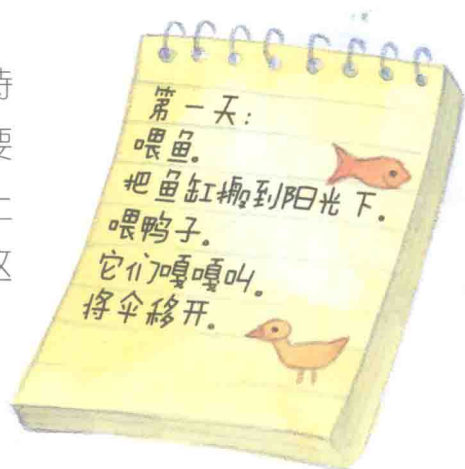 第一天：
喂鱼。
把鱼缸搬到阳光下。
喂鸭子。
它们嘎嘎叫。
将伞移开。
要